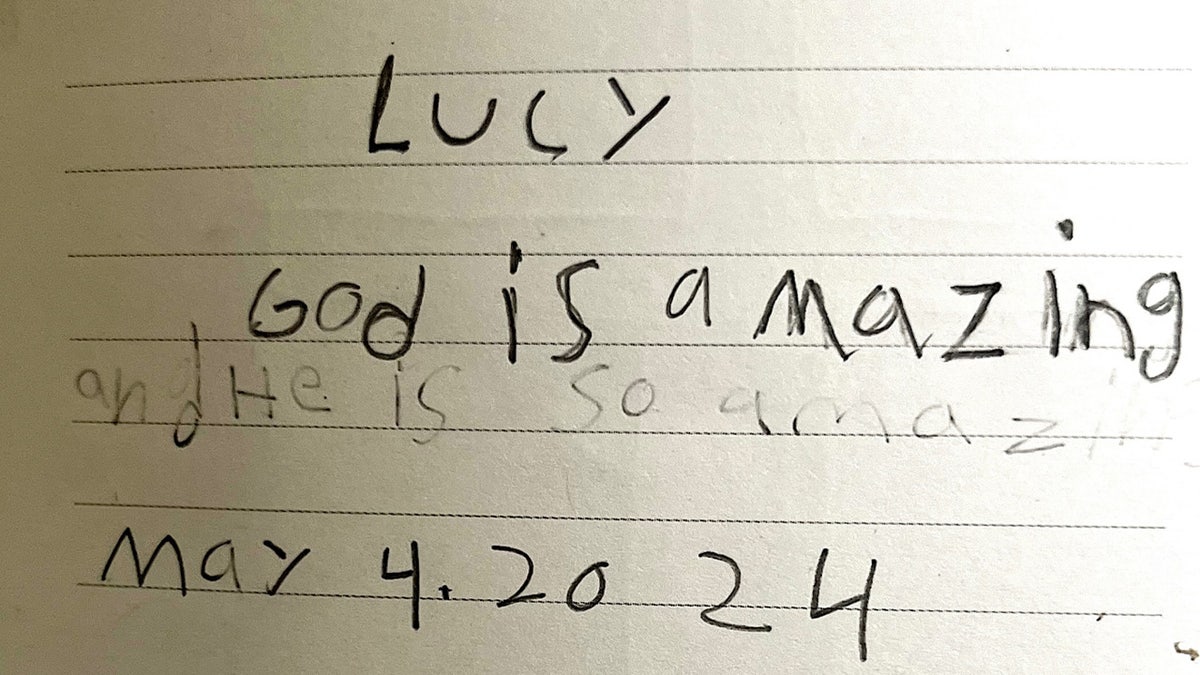 Lucy
God is amazing
and He is so amazing
May 4.2024